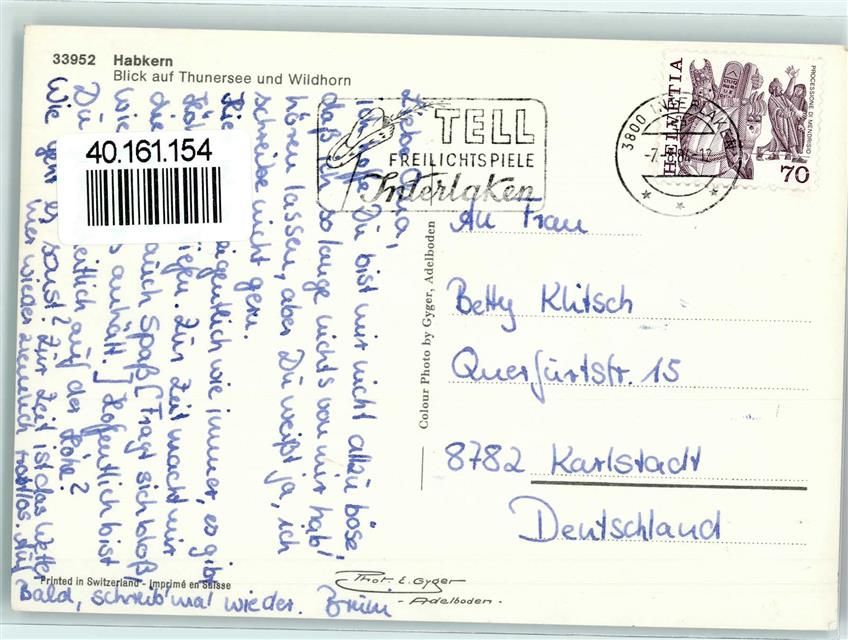 33952 Habkern
Blick auf Thunersee und Wildhorn
40.161.154
TELL
FREILICHTSPIELE
Interlaken
3800 INTERLAKEN
HELVETIA
PROCESSIONE DI MENDRISIO
70
Liebe
ich hoffe Du bist mir nicht allzu böse,
daß ich so lange nichts von mir hab'
hören lassen, aber Du weißt ja, ich
schreibe nicht gern.
eigentlich wie immer, es gibt
Zur Zeit macht mir
die auch Spaß [Fragt sich bloß,
wie anhält.] Hoffentlich bist
Du auf der Höhe?
Wie geht es sonst? Zur Zeit ist das Wetter
hier wieder ziemlich trostlos. Auf
Bald, schreib' mal wieder.
An Frau
Betty Klitsch
Querfurtstr. 15
8782 Karlstadt
Deutschland
Colour Photo by Gyger, Adelboden
Printed in Switzerland - Imprimé en Suisse
Phot. E. Gyger
- Adelboden -